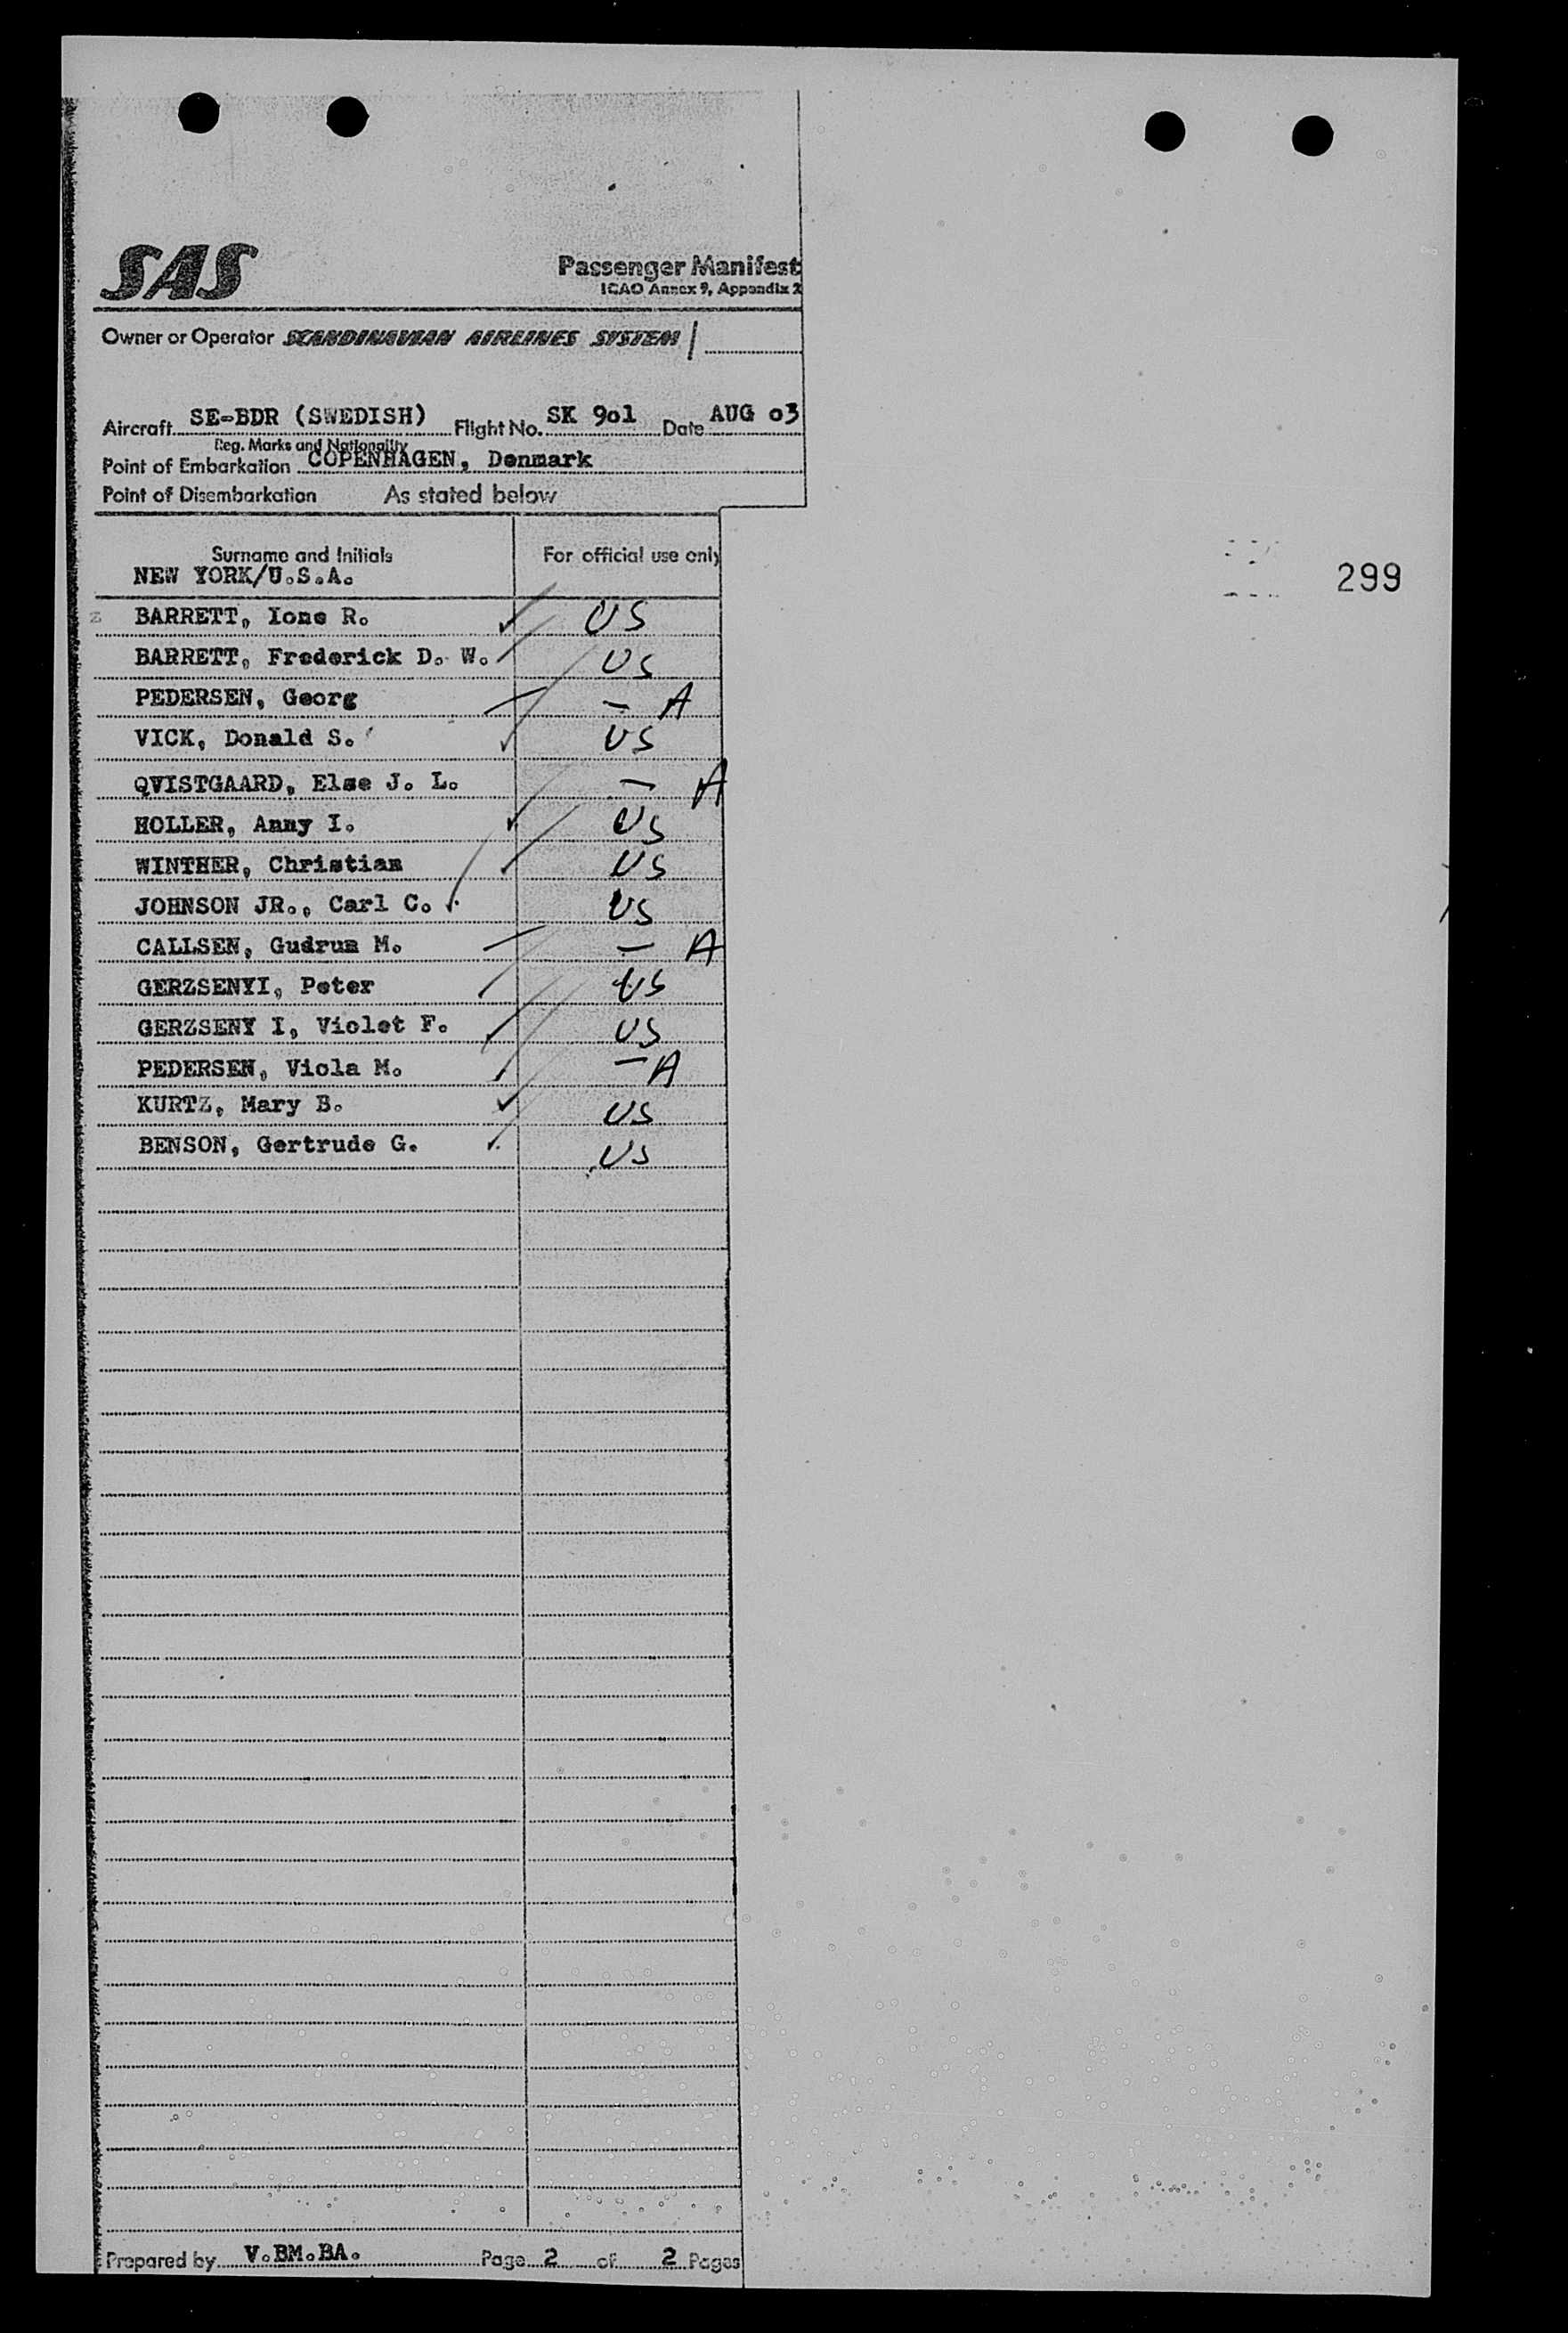 SAS
Passenger Manifest
ICAO Annex 9, Appendix 2
Owner or Operator SCANDINAVIAN AIRLINES SYSTEM /
Aircraft SE-BDR (SWEDISH) Flight No. SK 9o1 Date AUG o3
Reg. Marks and Nationality
Point of Embarkation COPENHAGEN, Denmark
Point of Disembarkation As stated below
Surname and Initials For official use only
NEW YORK/U.S.A.
299
BARRETT, Ione R. ✓ US
BARRETT, Frederick D. W. / US
PEDERSEN, Georg — A
VICK, Donald S. ✓ US
QVISTGAARD, Else J. L. — A
HOLLER, Anny I. ✓ US
WINTHER, Christian ✓ US
JOHNSON JR., Carl C. ✓ US
CALLSEN, Gudrun M. — A
GERZSENYI, Peter / US
GERZSENY I, Violet F. ✓ US
PEDERSEN, Viola M. — A
KURTZ, Mary B. ✓ US
BENSON, Gertrude G. ✓ US
Prepared by V.BM.BA. Page 2 of 2 Pages